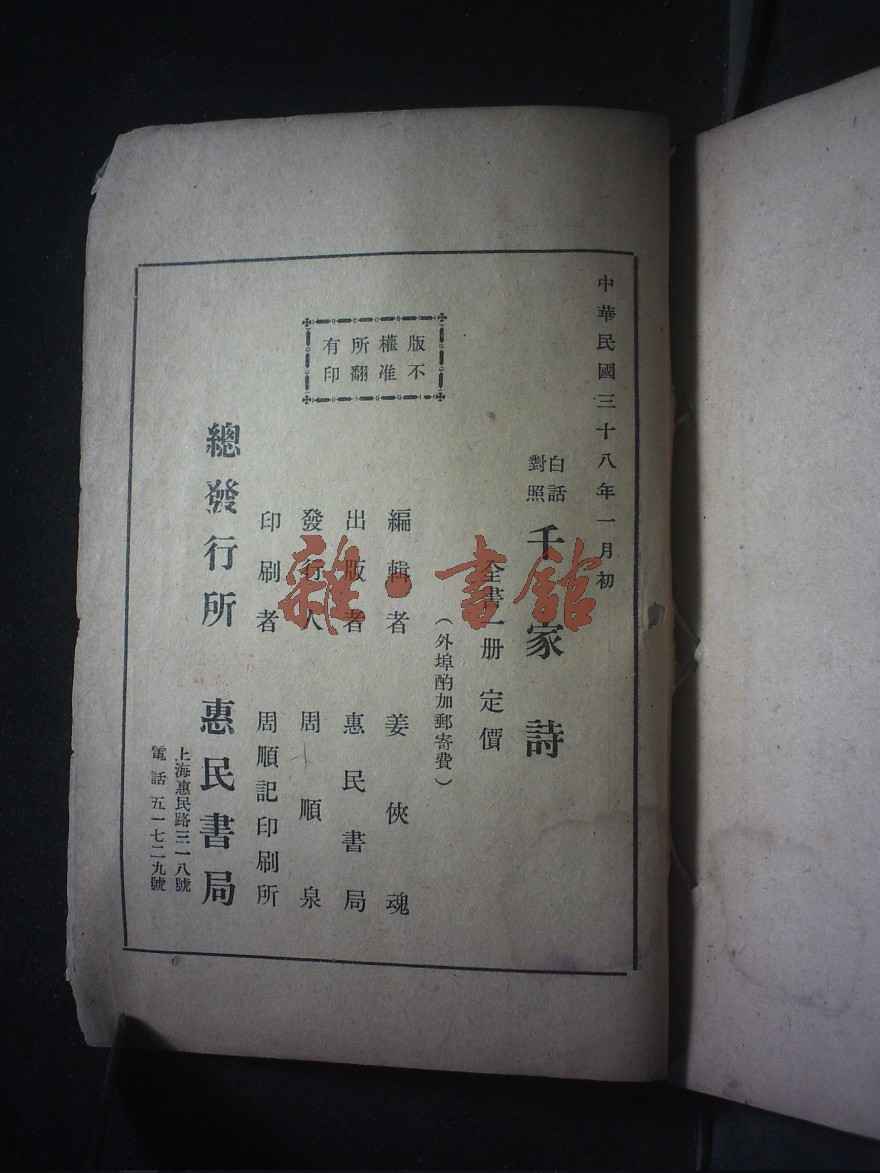 中華民國三十八年一月初
白話
對照
千家詩
全書一册 定價
（外埠酌加郵寄費）
版權所有
不准翻印
編輯者 姜俠魂
出版者 惠民書局
發行人 周順泉
印刷者 周順記印刷所
總發行所 惠民書局
上海惠民路三一八號
電話五一七二九號
雜·書館